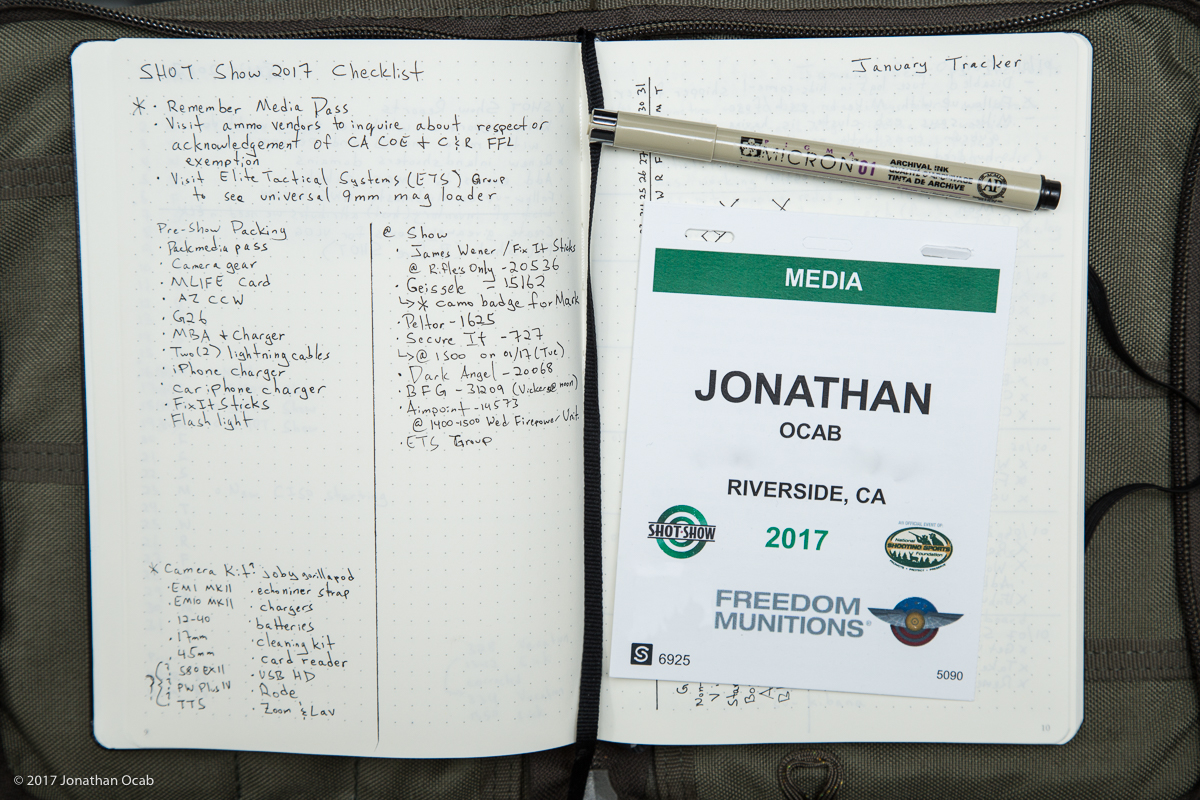 SHOT Show 2017 Checklist
* · Remember Media Pass
· Visit ammo vendors to inquire about respect or
acknowledgement of CA COE + C&R FFL
exemption
· Visit Elite Tactical Systems (ETS) Group
to see universal 9mm mag loader
Pre-Show Packing
· Pack media pass
· Camera gear
· MLIFE Card
· AZ CCW
· G26
· MBA + Charger
· Two (2) lightning cables
· iPhone charger
· car iPhone charger
· Fix It Sticks
· Flash light
@ Show
· James Wener / Fix It Sticks
@ Rifles Only - 20536
· Geissele - 15162
↳ * camo badge for Mark
· Peltor - 1625
· Secure It - 727
↳ @ 1500 on 01/17 (Tue)
· Dark Angel - 20068
· BFG - 31209 (Vickers @ noon)
· Aimpoint - 14573
@ 1400-1500 Wed Firepower Unt.
· ETS Group
* Camera Kit:
· EM1 MKII
· EM10 MKII
· 12-40
· 17mm
· 45mm
? { · 580 EXII
· PW Plus IV
· TTS
· Joby gorillapod
· echoniner strap
· chargers
· batteries
· cleaning kit
· card reader
· USB HD
· Rode
· Zoom & Lav
9
January Tracker
30 31
M T
25 26 27
W R F
SAKURA
PIGMA
MICRON 01
ARCHIVAL INK
TINTA DE ARCHIVE
AP
MEDIA
JONATHAN
OCAB
RIVERSIDE, CA
SHOT SHOW
2017
AN OFFICIAL EVENT OF
National
SHOOTING SPORTS
Foundation
FREEDOM
MUNITIONS®
S 6925
5090
10
© 2017 Jonathan Ocab